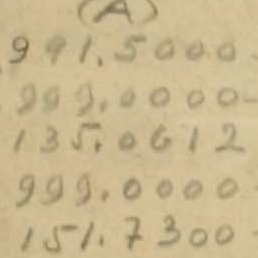 (A)
991.5000-
999.0000-
135.0612
999.0000-
151.7300-